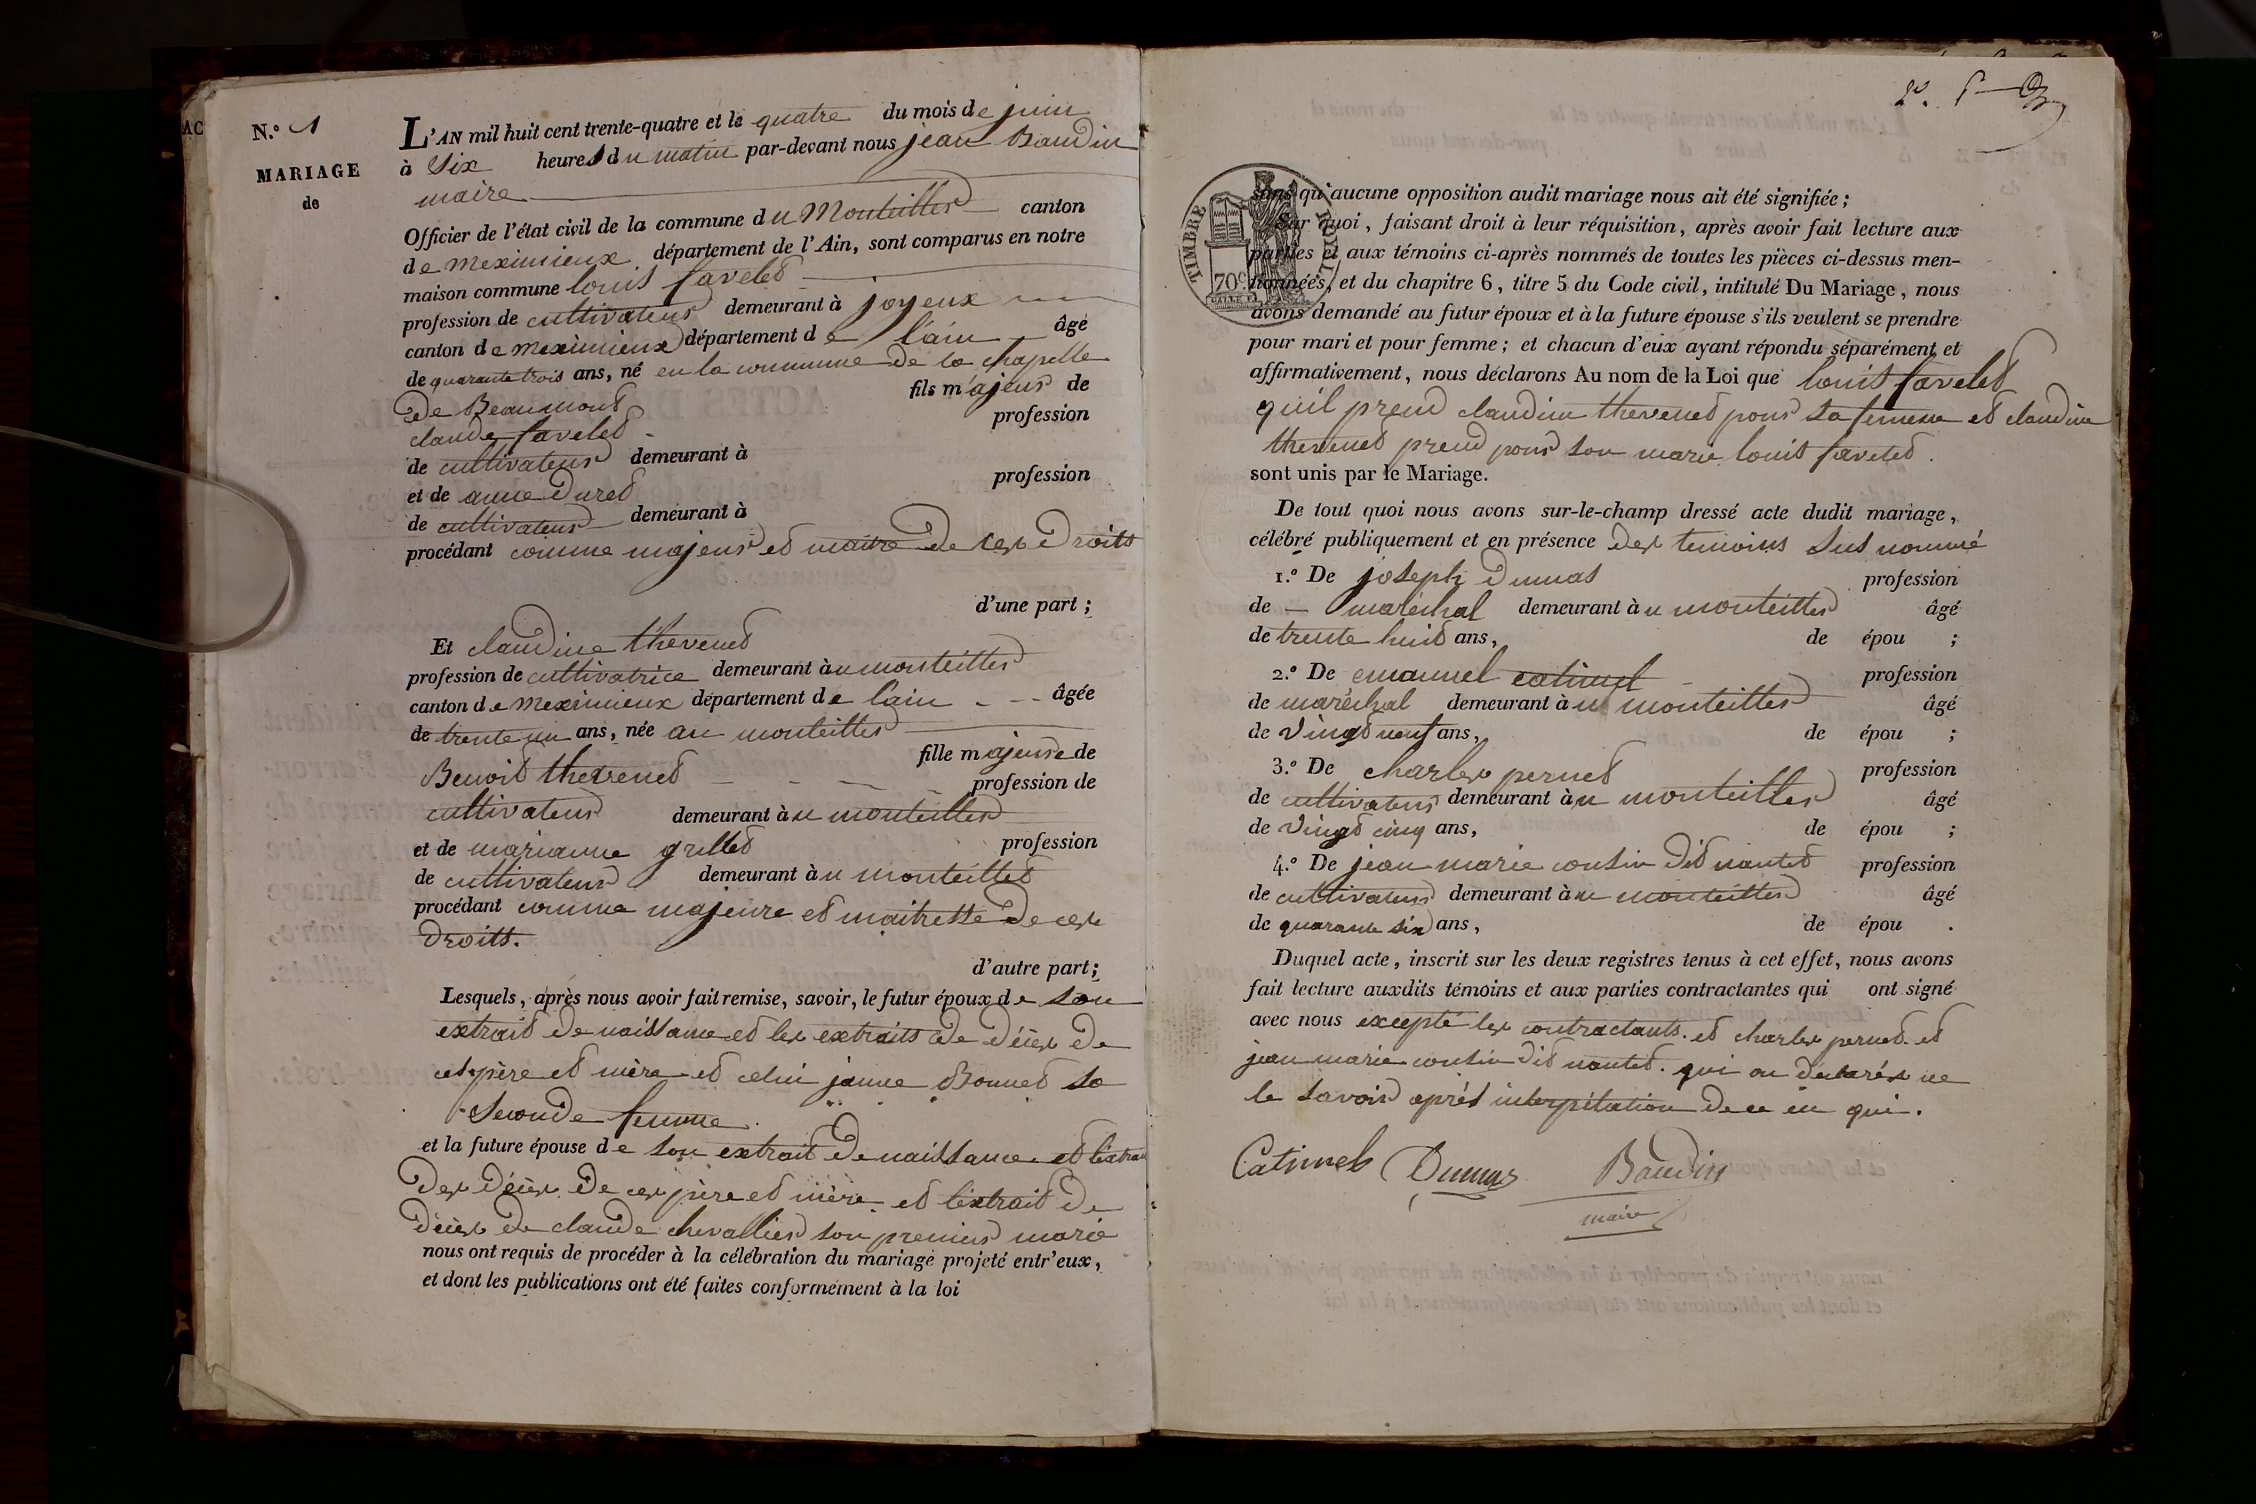 N.º 1
MARIAGE
de
L'AN mil huit cent trente-quatre et le quatre du mois de juin
à Six heures du matin par-devant nous jean Baudin
maire
Officier de l'état civil de la commune du Montellier canton
de meximieux département de l'Ain, sont comparus en notre
maison commune louis favelet
profession de cultivateur demeurant à joyeux
canton de meximieux département de l'ain âgé
de quarante trois ans, né en la commune de la chapelle
de Beaumont fils majeur de
claude favelet profession
de cultivateur demeurant à
et de anne duret profession
de cultivateur demeurant à
procédant comme majeur et maitre de ces droits
d'une part ;
Et claudine thevenet
profession de cultivatrice demeurant à u monteiller
canton de meximieux département de l'ain âgée
de trente un ans, née au monteiller
fille majeure de
Benoit thevenet profession de
cultivateur demeurant à u monteiller
et de marianne grillet profession
de cultivateur demeurant à u monteiller
procédant comme majeure et maitresse de ces
droits.
d'autre part ;
Lesquels, après nous avoir fait remise, savoir, le futur époux de son
extrait de naissance et les extraits de décès de
ces père et mère et celui janne Bonnet sa
seconde femme.
et la future épouse de son extrait de naissance et l'extrait
des décès de ces père et mère et l'extrait de
décès de claude chevallier son premier marie
nous ont requis de procéder à la célébration du mariage projeté entr'eux,
et dont les publications ont été faites conformément à la loi
TIMBRE ROYAL
70c
sans qu'aucune opposition audit mariage nous ait été signifiée ;
Sur quoi, faisant droit à leur réquisition, après avoir fait lecture aux
parties et aux témoins ci-après nommés de toutes les pièces ci-dessus men-
tionnées, et du chapitre 6, titre 5 du Code civil, intitulé Du Mariage, nous
avons demandé au futur époux et à la future épouse s'ils veulent se prendre
pour mari et pour femme ; et chacun d'eux ayant répondu séparément et
affirmativement, nous déclarons Au nom de la Loi que louis favelet
quil prend claudine thevenet pour sa femme et claudine
thevenet prend pour son marie louis favelet.
sont unis par le Mariage.
De tout quoi nous avons sur-le-champ dressé acte dudit mariage,
célébré publiquement et en présence des temoins sus nommé
1.º De joseph Dumas profession
de maréchal demeurant à u monteiller âgé
de trente huit ans, de épou ;
2.º De emanuel catimel profession
de maréchal demeurant à u monteiller âgé
de vingt neuf ans, de épou ;
3.º De charles pernet profession
de cultivateur demeurant à u monteiller âgé
de vingt cinq ans, de épou ;
4.º De jean marie cousin dit nantet profession
de cultivateur demeurant à u monteiller âgé
de quarante six ans, de épou .
Duquel acte, inscrit sur les deux registres tenus à cet effet, nous avons
fait lecture auxdits témoins et aux parties contractantes qui ont signé
avec nous excepté les contractants. et charles pernet. et
jean marie cousin dit nantet. qui on déclarés ne
le savoir après interpélation de ce en qui.
Catimel Dumas Baudin
maire